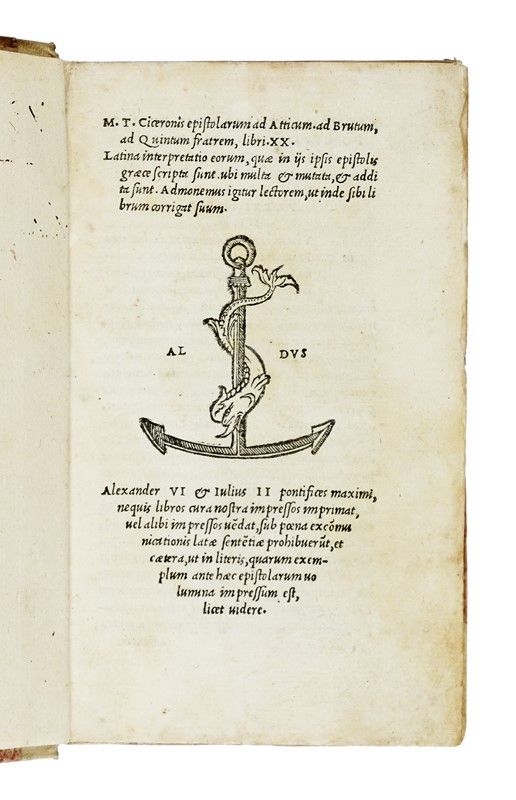 M. T. Ciceronis epistolarum ad Atticum. ad Brutum,
ad Quintum fratrem, libri. XX.
Latina interpretatio eorum, quæ in ijs ipsis epistolis
græce scripta sunt. ubi multa & mutata, & addi
ta sunt. Admonemus igitur lectorem, ut inde sibi li
brum corrigat suum.
AL DVS
Alexander VI & Iulius II pontifices maximi,
nequis libros cura nostra impressos imprimat,
uel alibi impressos uēdat, sub pœna excōmu
nicationis latæ sentētiæ prohibuerūt, et
cætera, ut in literis, quarum exem-
plum ante hæc epistolarum uo
lumina impressum est,
licet uidere.